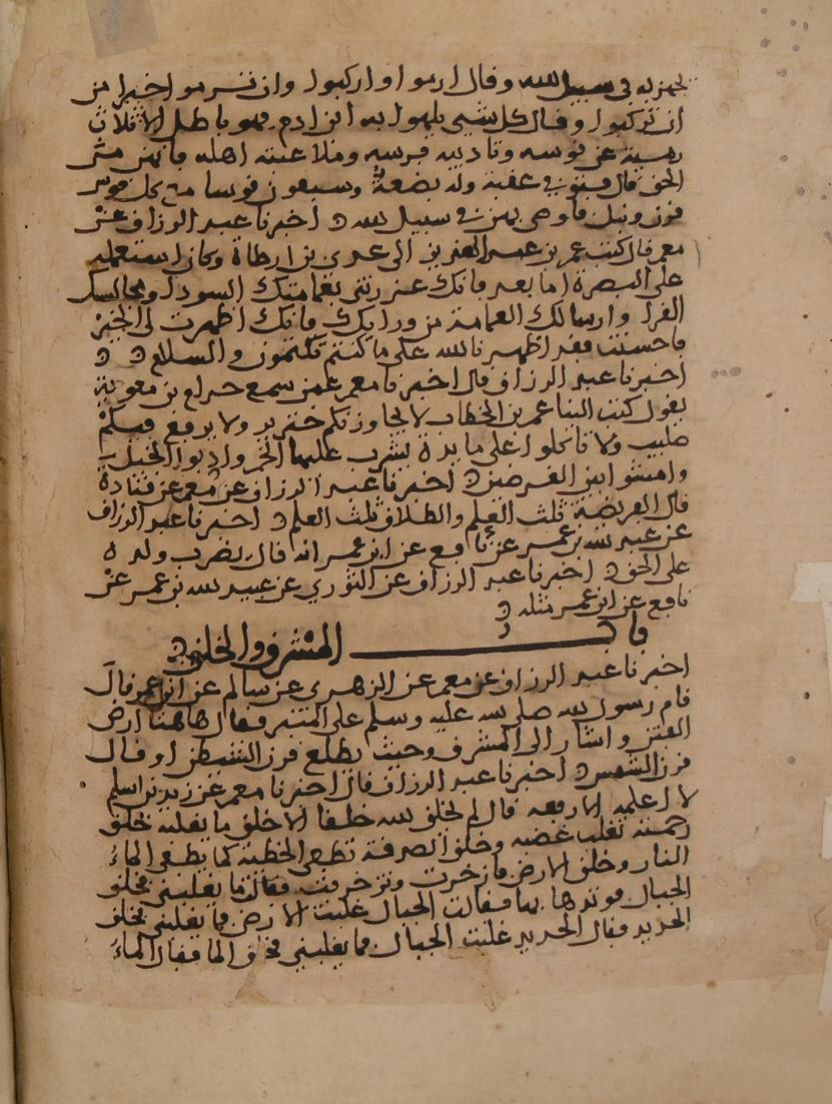 يجهز به في سبيل الله وقال ارموا واركبوا وان ترموا خير من
ان تركبوا وقال كل شيء يلهو به ابن ادم فهو باطل الا ثلاث
رميه عن قوسه وتاديبه فرسه وملاعبته اهله فانهن من
الحق قال فتوفي عقبة وله بضعة وسبعون قوسا مع كل قوس
قرن ونبل فاوصى بهن في سبيل الله ه اخبرنا عبد الرزاق عن
معمر قال كتب عمر بن عبد العزيز الى عدي بن ارطاة وكان استعمله
على البصرة اما بعد فانك غررتني بعمامتك السودا ومجالستك
القرا وارسالك العمامة من ورايك فانك اظهرت لي الخير
فاحسنت فقد اظهرنا الله على ما كنتم تكتمون والسلام ه ه
اخبرنا عبد الرزاق قال اخبرنا معمر عمن سمع حرام بن معوية
يقول كتب الينا عمر بن الخطاب لا يجاورنكم خنزير ولا يرفع فيكم
صليب ولا تاكلوا على مايدة يشرب عليها الخمر وادبوا الخيل
وامشوا بين الغرضين ه اخبرنا عبد الرزاق عن معمر عن قتادة
قال الفريضة ثلث العلم والطلاق ثلث العلم ه اخبرنا عبد الرزاق
عن عبد الله بن عمر عن نافع عن ابن عمر انه قال يضرب ولده
على الحق ه اخبرنا عبد الرزاق عن الثوري عن عبيد الله بن عمر عن
نافع عن ابن عمر مثله ه
باب المشرق والخلق ه
اخبرنا عبد الرزاق عن معمر عن الزهري عن سالم عن ابن عمر قال
قام رسول الله صلى الله عليه وسلم على المنبر فقال هاهنا ارض
الفتن واشار الى المشرق وحيث يطلع قرن الشيطن او قال
قرن الشمس ه اخبرنا عبد الرزاق قال اخبرنا معمر عن زيد بن اسلم
لا اعلمه الا رفعه قال لم يخلق الله خلقا الا خلق ما يغلبه خلق
رحمته تغلب غضبه وخلق الصدقة تطفي الخطية كما يطفي الماء
النار وخلق الارض فازخرت وتزخرفت فقالت ما يغلبني فخلق
الجبال فوتدها بها فقالت الجبال غلبت الارض فما يغلبني فخلق
الحديد فقال الحديد غلبت الجبال فما يغلبني فخلق النار فقال الماء